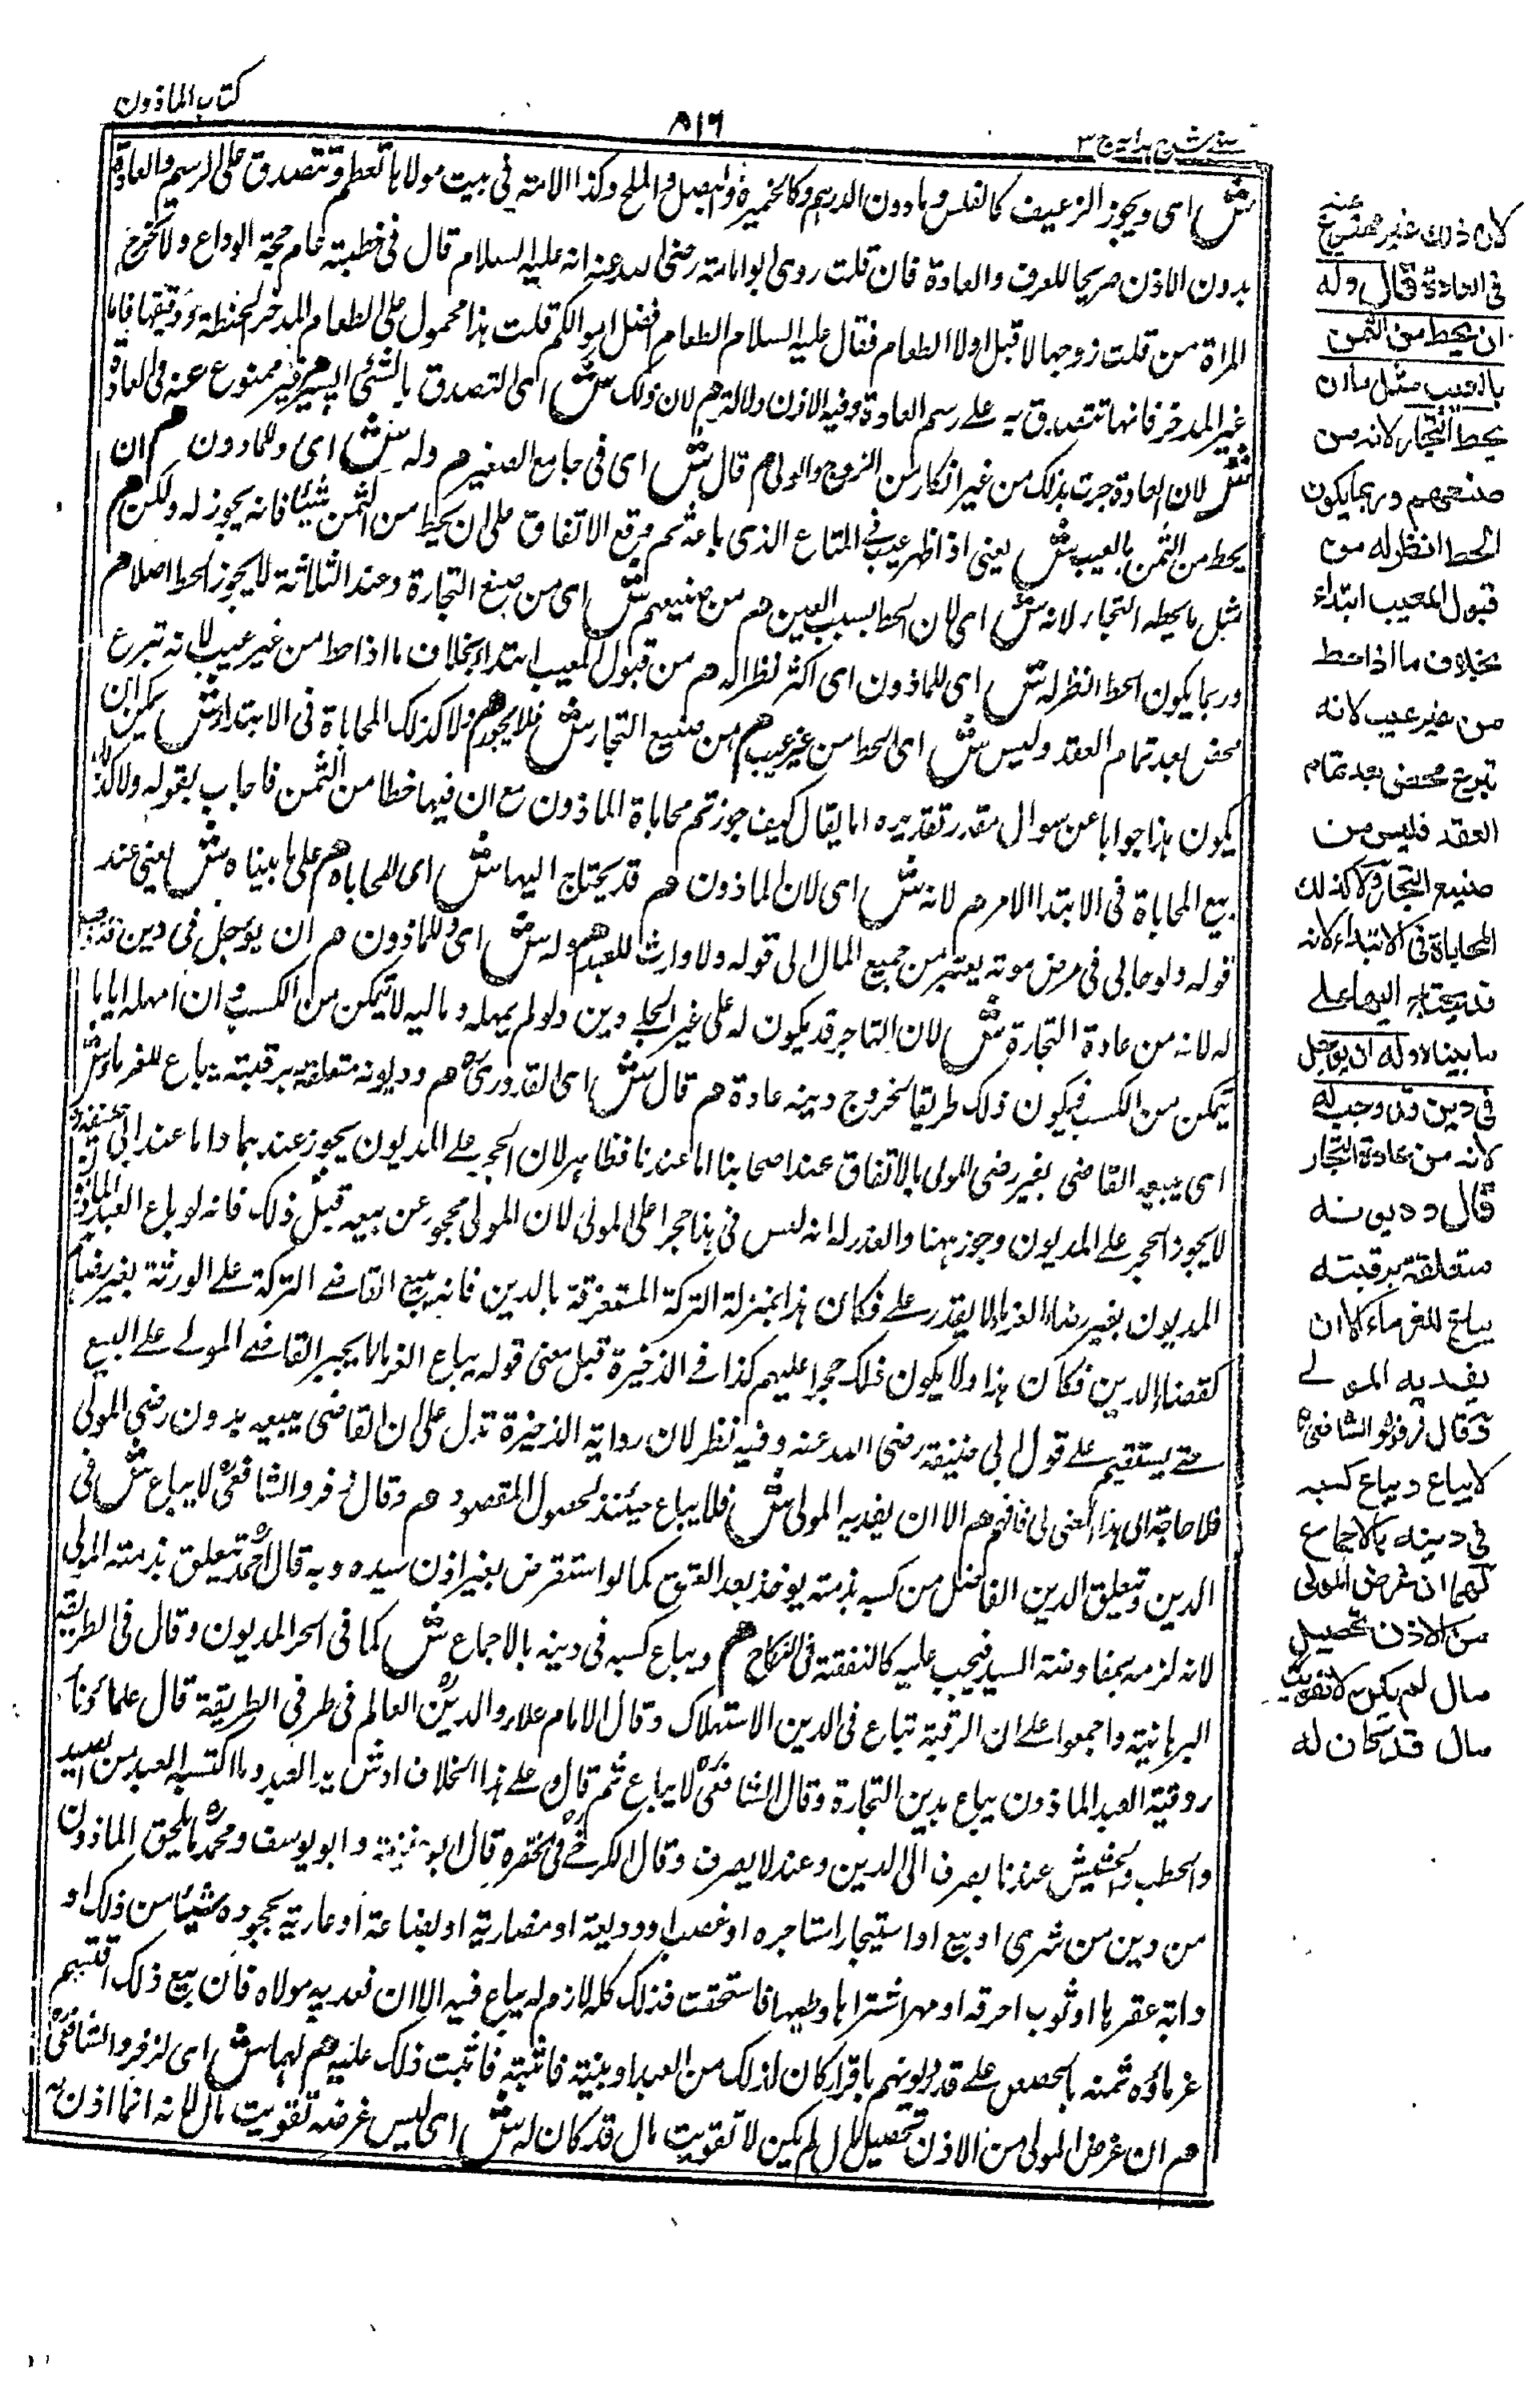 كتاب الماذون
٨١٦
عينى شرح هدايه ج ٣
ش اى ويجوز الرغيف كالفلس وما دون الدرهم وكالخميرة والبصل والملح وكذا الامة فى بيت مولاها تطعم وتتصدق على الرسم والعادة
بدون الاذن صريحا للعرف والعادة فان قلت روى ابو امامة رضى الله عنه انه عليه السلام قال فى خطبته عام حجة الوداع ولا تخرج
المراة من بيت زوجها الا قيل ولا الطعام فقال عليه السلام الطعام افضل اموالكم قلت هذا محمول على الطعام المدخر كالحنطة ودقيقها فاما
غير المدخر فانها تتصدق به على رسم العادة وفيه الاذن دلالة هم لان ذلك ش اى التصدق بالشئ اليسير هم غير ممنوع عنه فى العادة
ش لان العادة جرت بذلك من غير انكار من الزوج والمولى هم قال ش اى فى جامع الصغير هم وله ش اى وللماذون هم ان
يحط من الثمن بالعيب ش يعنى اذا ظهر عيب فى المتاع الذى باعه ثم وقع الاتفاق على ان يحط من الثمن شيئا فانه يجوز له ولكن هم
مثل ما يحط التجار لانه ش اى لان الحط بسبب العيب هم من صنيعهم ش اى من صنيع التجارة وعند الثلاثة لا يجوز الحط اصلا هم
وربما يكون الحط انظر له ش اى للماذون اى اكثر نظرا له هم من قبول المعيب ابتداء بخلاف ما اذا حط من غير عيب لانه تبرع
محض بعد تمام العقد وليس ش اى الحط من غير عيب هم من صنيع التجار ش فلا يجوز هم ولا كذلك المحاباة فى الابتداء ش يمكن ان
يكون هذا جوابا عن سوال مقدر تقديره اما يقال كيف جوزتم محاباة الماذون مع ان فيها حطا من الثمن فاجاب بقوله ولا كذلك
بيع المحاباة فى الابتدا الامر هم لانه ش اى لان الماذون هم قد يحتاج اليها ش اى للمحاباة هم على ما بيناه ش يعنى عند
قوله ولو حابى فى مرض موته يعتبر من جميع المال الى قوله ولا وارث للعبد هم وله ش اى وللماذون هم ان يؤجل فى دين قد وجب
له لانه من عادة التجارة ش لان التاجر قد يكون له على غير المحل دين ولو لم يمهله وماليه لا يتمكن من الكسب وان امهله اياما
يتمكن من الكسب فيكون ذلك طريقا لخروج دينه عادة هم قال ش اى القدورى هم وديونه متعلقة برقبته يباع للغرماء ش
اى يبيعه القاضى بغير رضى المولى بالاتفاق عند اصحابنا اما عندنا فظاهر لان الحجر على المديون يجوز عندهما واما عند ابى حنيفة
لا يجوز الحجر على المديون وجوز ههنا والعذر له انه ليس فى هذا حجرا على المولى لان المولى محجور عن بيعه قبل ذلك فانه لو باع العبد الماذون
المديون بغير رضاء الغرماء لا يقدر على فكان هذا بمنزلة التركة المستغرقة بالدين فانه يبيع القاضى التركة على الورثة بغير رضاهم
كقضاء الدين فكان هذا ولا يكون ذلك حجرا عليهم كذا فى الذخيرة قيل معنى قوله يباع الغرما لا يجبر القاضى المولى على البيع
حتى يستقيم على قول ابى حنيفة رضى الله عنه وفيه نظر لان رواية الذخيرة تدل على ان القاضى يبيعه بدون رضى المولى
فلا حاجة الى هذا المعنى لى فافهم هم الا ان يفديه المولى ش فلا يباع حينئذ لحصول المقصود هم وقال زفر والشافعى لا يباع ش فى
الدين وتعلق الدين الفاضل من كسبه بذمته يوخذ بعد العتق كما لو استقرض بغير اذن سيده وبه قال احمد تتعلق بذمته المولى
لانه لزمه بمفاوضة السيد فيجب عليه كالنفقة فى النكاح هم ويباع كسبه فى دينه بالاجماع ش كما فى الحر المديون وقال فى الطريقة
البرهانية واجمعوا على ان الرقبة تباع فى الدين الاستهلاك وقال الامام علاء والدين العالم فى طرفى الطريقة قال علماؤنا
روقية العبد الماذون يباع بدين التجارة وقال الشافعى لا يباع ثم قال وعلى هذا الخلاف اوش يد العبد وما اكتسبه العبد من الصيد
والحطب والحشيش عندنا يصرف الى الدين وعند لا يصرف وقال الكرخى فى مختصره قال ابو حنيفة وابو يوسف ومحمد ما يلحق الماذون
من دين من شرى او بيع او استيجار استاجره او غصب او وديعة او مضاربة او بضاعة او عارية يجحوده شيئا من ذلك او
دابة عقرها او ثوب احرقه او مهر اشتراها وطيها فاستحقت فذلك كله لازم له يباع فيه الا ان يفديه مولاه فان بيع ذلك اقتسم
غرماؤه ثمنه بالحصص على قدر ديونهم باقرار كان ذلك من العبد او بينة قائمة فاثبت ذلك عليه هم لهما ش اى لزفر والشافعى
هم ان غرض المولى من الاذن تحصيل مال لم يكن لا تفويت مال قد كان له ش اى ليس غرضه تفويت مال لانه انما اذن له
لان ذلك غير ممنوع عنه
فى العادة قال وله
ان يحط من الثمن
بالعيب مثل ما ان
يحط التجار لانه من
صنعهم وربما يكون
الحط انظر له من
قبول المعيب ابتداء
بخلاف ما اذا حط
من غير عيب لانه
تبرع محض بعد تمام
العقد فليس من
صنيع التجار ولا كذلك
المحاباة فى الابتداء لانه
قد يحتاج اليها على
ما بيناه وله ان يؤجل
فى دين قد وجب له
لانه من عادة التجار
قال وديونه
متعلقة برقبته
يباع للغرماء الا ان
يفديه المولى
وقال زفر والشافعى
لا يباع ويباع كسبه
فى دينه بالاجماع
لهما ان غرض المولى
من الاذن تحصيل
مال لم يكن لا تفويت
مال قد كان له